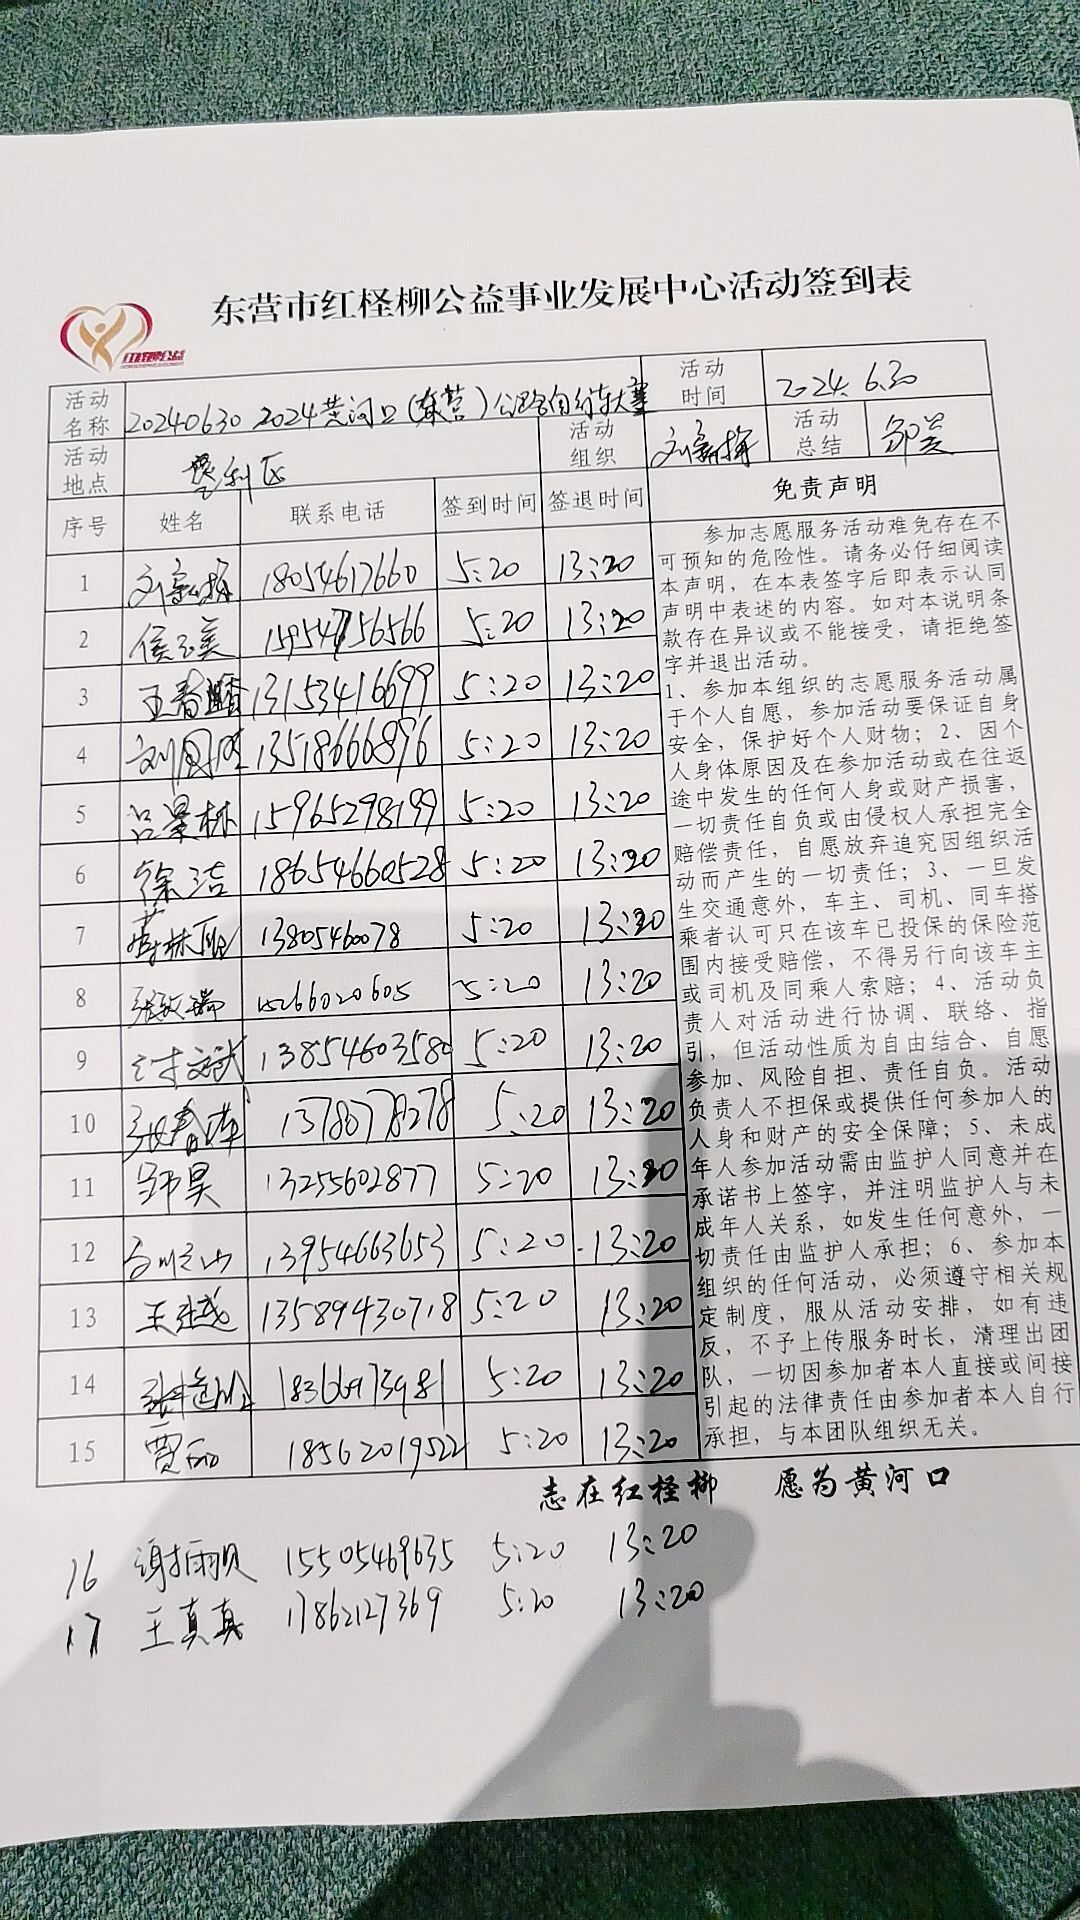 东营市红柽柳公益事业发展中心活动签到表
红柽柳公益
活动名称 20240630 2024黄河口(东营)公路自行车大赛 活动时间 2024.6.30
活动地点 垦利区 活动组织 刘 梅 活动总结
序号 姓名 联系电话 签到时间 签退时间 免责声明
1 刘 梅 18054617660 5:20 13:20
2 侯玉美 15954756566 5:20 13:20
3 王春 13153416699 5:20 13:20
4 刘国 13518666896 5:20 13:20
5 吕景林 15965298199 5:20 13:20
6 徐洁 18654660528 5:20 13:20
7 13805460078 5:20 13:20
8 张 瑞 15266020605 5:20 13:20
9 13854603580 5:20 13:20
10 张春萍 13780778278 5:20 13:20
11 昊 13255602877 5:20 13:20
12 13954663653 5:20 13:20
13 王 越 13589430718 5:20 13:20
14 张 18366973981 5:20 13:20
15 贾 18562019522 5:20 13:20
参加志愿服务活动难免存在不
可预知的危险性。请务必仔细阅读
本声明，在本表签字后即表示认同
声明中表述的内容。如对本说明条
款存在异议或不能接受，请拒绝签
字并退出活动。
1、参加本组织的志愿服务活动属
于个人自愿，参加活动要保证自身
安全，保护好个人财物；2、因个
人身体原因及在参加活动或在往返
途中发生的任何人身或财产损害，
一切责任自负或由侵权人承担完全
赔偿责任，自愿放弃追究因组织活
动而产生的一切责任；3、一旦发
生交通意外，车主、司机、同车搭
乘者认可只在该车已投保的保险范
围内接受赔偿，不得另行向该车主
或司机及同乘人索赔；4、活动负
责人对活动进行协调、联络、指
引，但活动性质为自由结合、自愿
参加、风险自担、责任自负。活动
负责人不担保或提供任何参加人的
人身和财产的安全保障；5、未成
年人参加活动需由监护人同意并在
承诺书上签字，并注明监护人与未
成年人关系，如发生任何意外，一
切责任由监护人承担；6、参加本
组织的任何活动，必须遵守相关规
定制度，服从活动安排，如有违
反，不予上传服务时长，清理出团
队，一切因参加者本人直接或间接
引起的法律责任由参加者本人自行
承担，与本团队组织无关。
志在红柽柳 愿为黄河口
16 谢 15505469635 5:20 13:20
17 王真真 17862127369 5:20 13:20